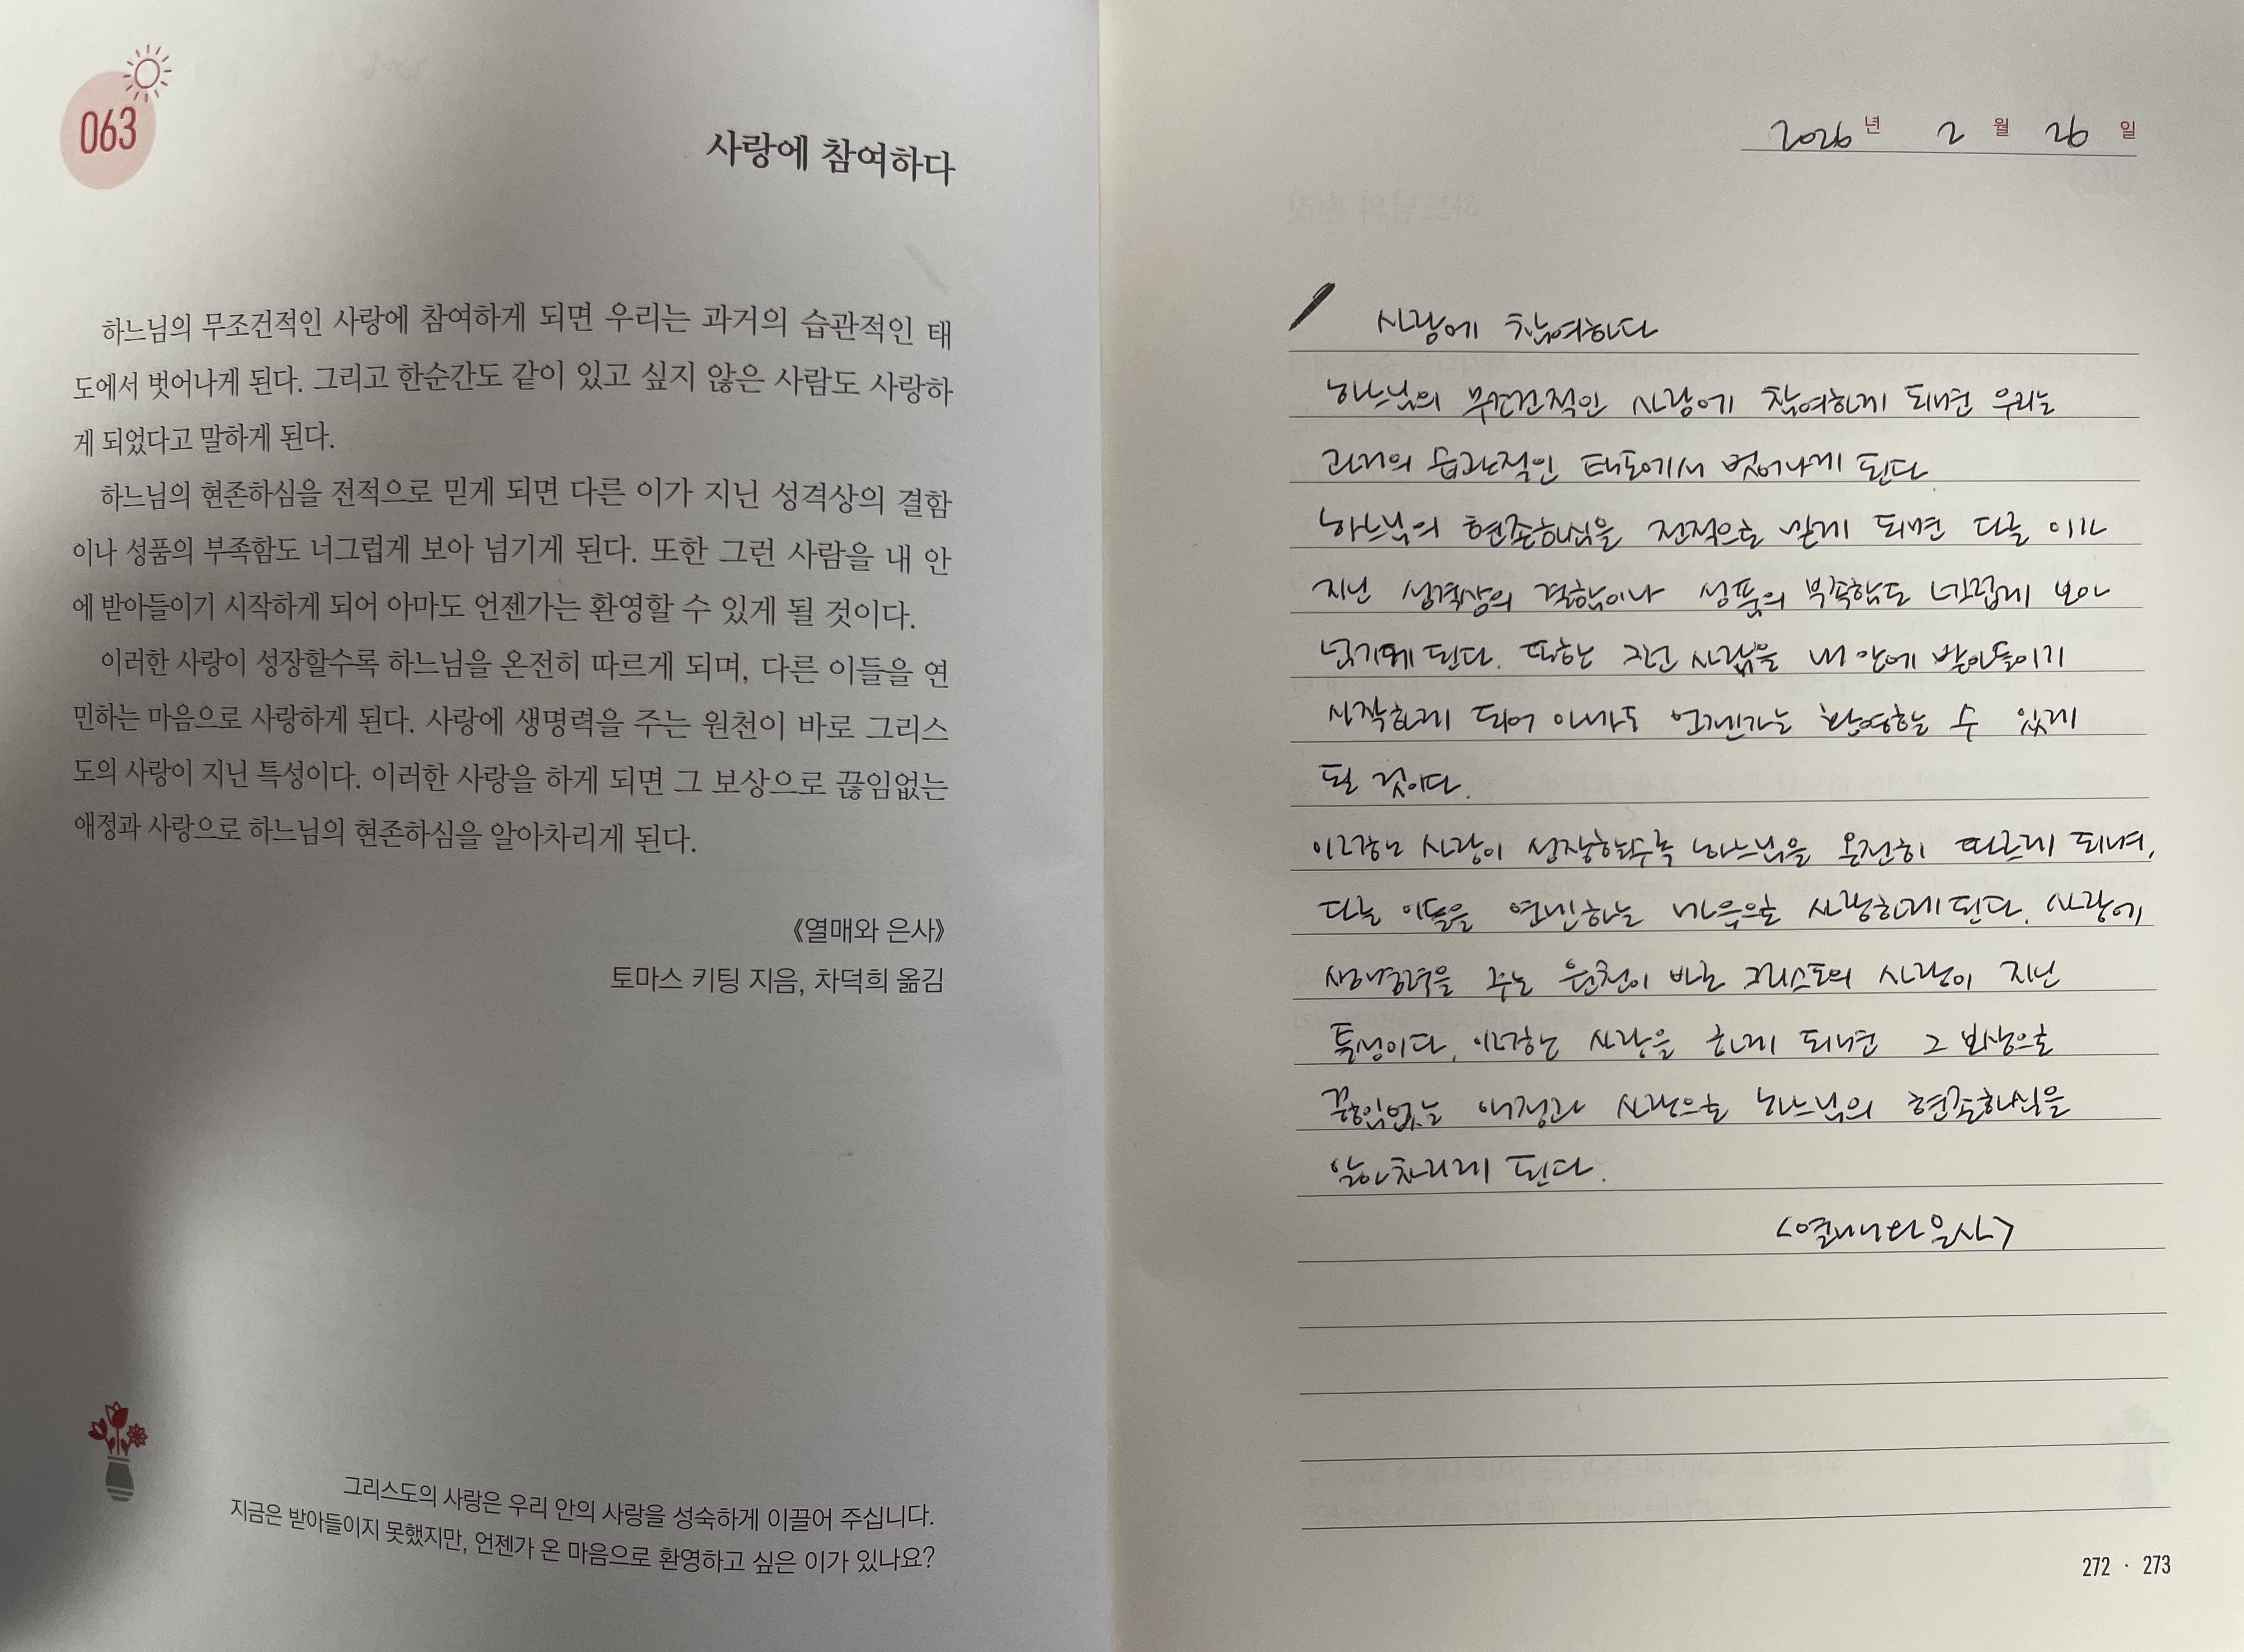 063
사랑에 참여하다
하느님의 무조건적인 사랑에 참여하게 되면 우리는 과거의 습관적인 태
도에서 벗어나게 된다. 그리고 한순간도 같이 있고 싶지 않은 사람도 사랑하
게 되었다고 말하게 된다.
하느님의 현존하심을 전적으로 믿게 되면 다른 이가 지닌 성격상의 결함
이나 성품의 부족함도 너그럽게 보아 넘기게 된다. 또한 그런 사람을 내 안
에 받아들이기 시작하게 되어 아마도 언젠가는 환영할 수 있게 될 것이다.
이러한 사랑이 성장할수록 하느님을 온전히 따르게 되며, 다른 이들을 연
민하는 마음으로 사랑하게 된다. 사랑에 생명력을 주는 원천이 바로 그리스
도의 사랑이 지닌 특성이다. 이러한 사랑을 하게 되면 그 보상으로 끊임없는
애정과 사랑으로 하느님의 현존하심을 알아차리게 된다.
《열매와 은사》
토마스 키팅 지음, 차덕희 옮김
그리스도의 사랑은 우리 안의 사랑을 성숙하게 이끌어 주십니다.
지금은 받아들이지 못했지만, 언젠가 온 마음으로 환영하고 싶은 이가 있나요?
2026년 2월 26일
사랑에 참여하다
하느님의 무조건적인 사랑에 참여하게 되면 우리는
과거의 습관적인 태도에서 벗어나게 된다.
하느님의 현존하심을 전적으로 믿게 되면 다른 이가
지닌 성격상의 결함이나 성품의 부족함도 너그럽게 보아
넘기게 된다. 또한 그런 사람을 내 안에 받아들이기
시작하게 되어 아마도 언젠가는 환영하는 수 있게
될 것이다.
이러한 사랑이 성장할수록 하느님을 온전히 따르게 되며,
다른 이들을 연민하는 마음으로 사랑하게 된다. 사랑에
생명력을 주는 원천이 바로 그리스도의 사랑이 지닌
특성이다. 이러한 사랑을 하게 되면 그 보상으로
끊임없는 애정과 사랑으로 하느님의 현존하심을
알아차리게 된다.
<열매와 은사>
272 · 273